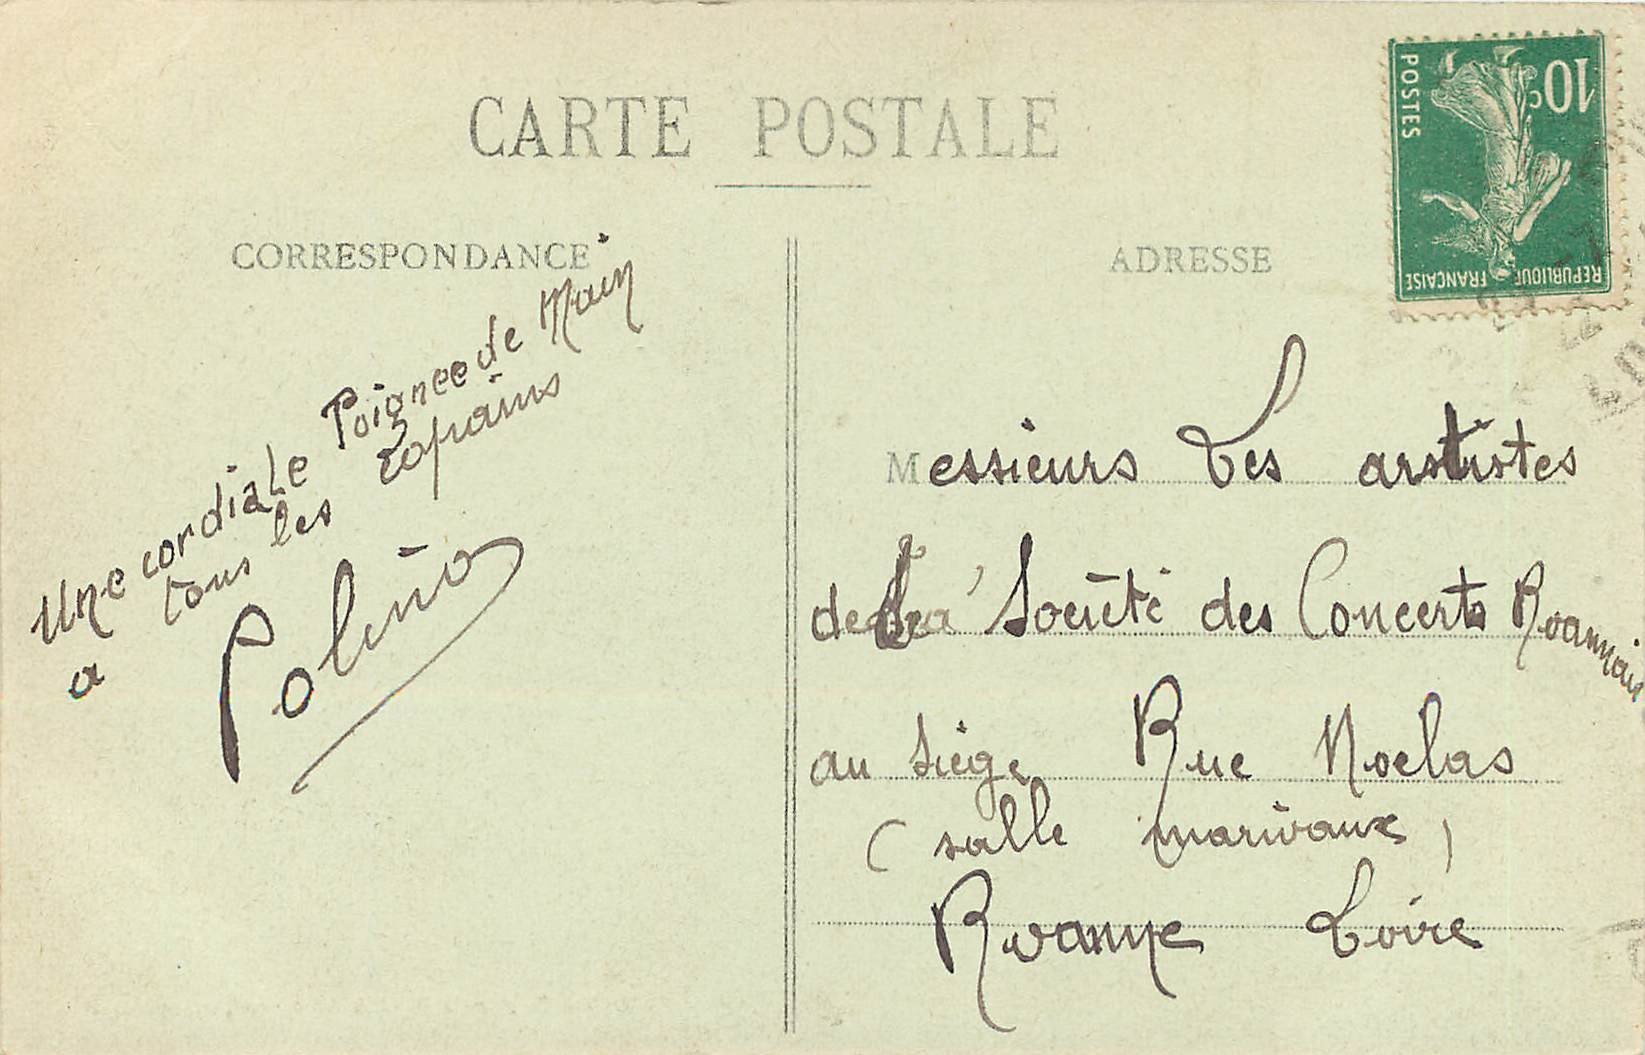 CARTE POSTALE
CORRESPONDANCE
Une cordiale Poignee de Main
a tous les copains
ADRESSE
10c
POSTES
REPUBLIQUE FRANCAISE
Messieurs Les artistes
de La Société des Concerts Roannais
au Siège Rue Noelas
(salle marivaux)
Roanne Loire